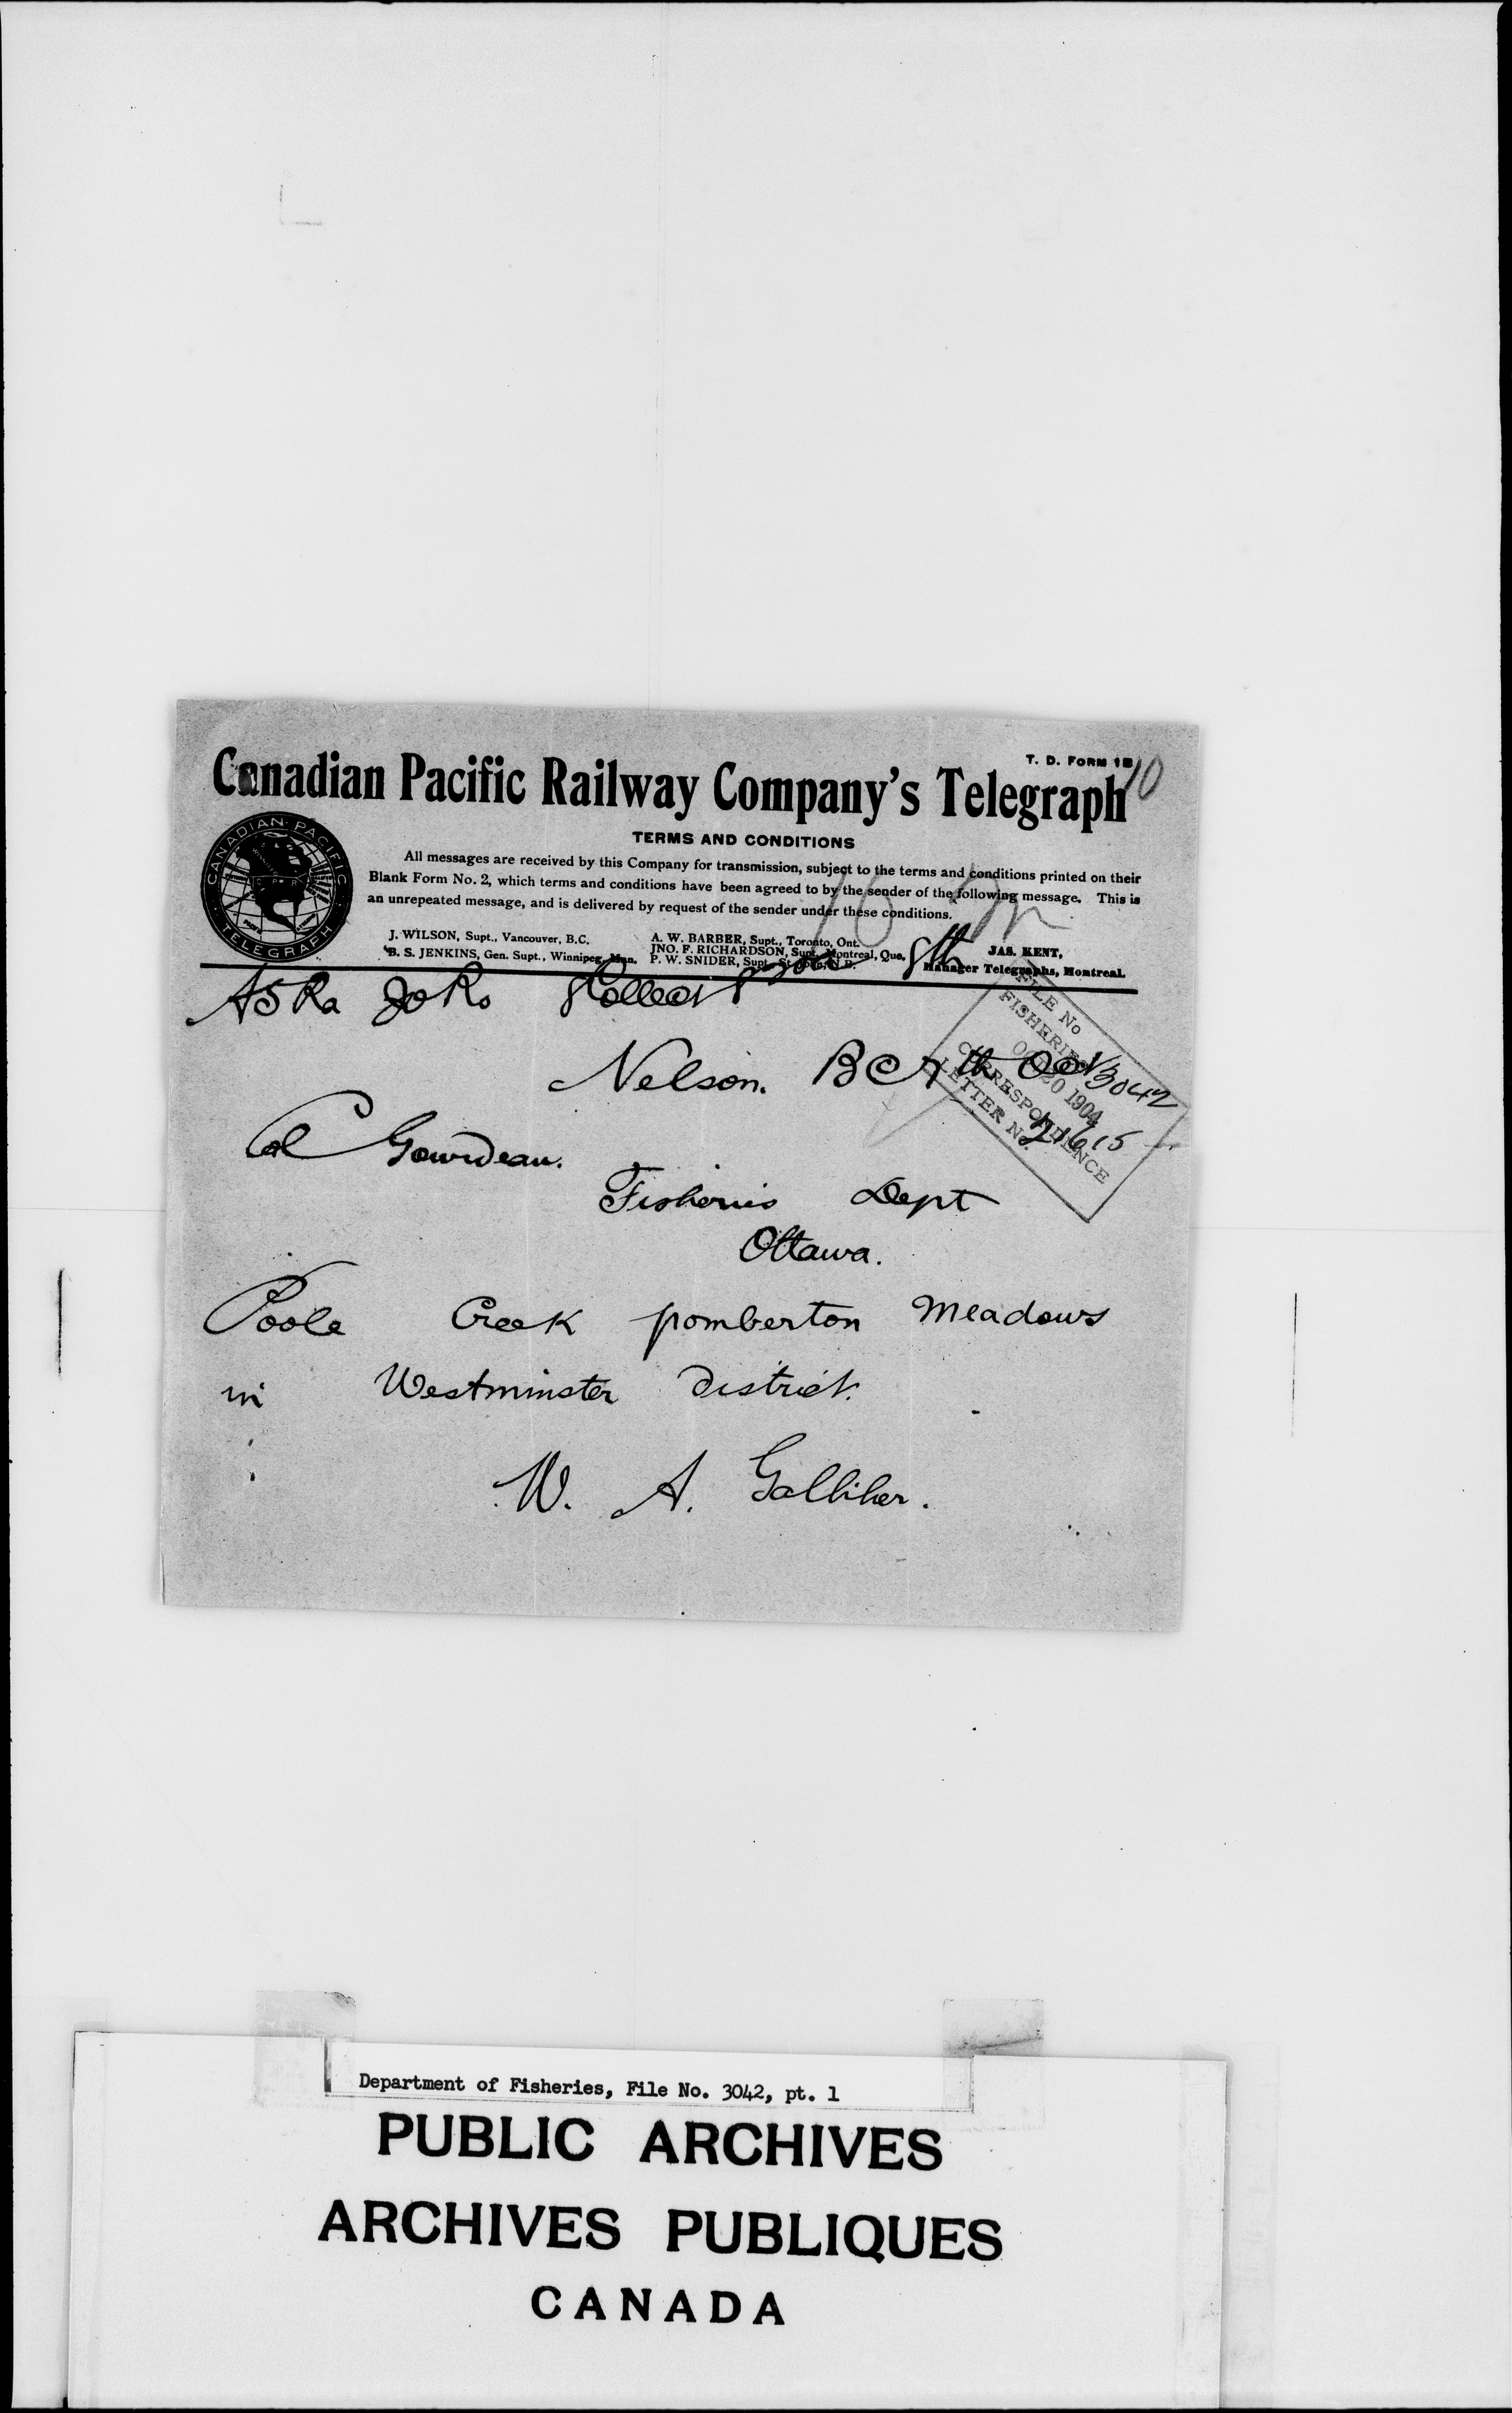 T. D. FORM 1B
10
Canadian Pacific Railway Company's Telegraph
CANADIAN PACIFIC
TELEGRAPH
TERMS AND CONDITIONS
All messages are received by this Company for transmission, subject to the terms and conditions printed on their
Blank Form No. 2, which terms and conditions have been agreed to by the sender of the following message. This is
an unrepeated message, and is delivered by request of the sender under these conditions.
J. WILSON, Supt., Vancouver, B.C.
B. S. JENKINS, Gen. Supt., Winnipeg, Man.
A. W. BARBER, Supt., Toronto, Ont.
JNO. F. RICHARDSON, Supt., Montreal, Que.
P. W. SNIDER, Supt., St. John, N.B.
JAS. KENT,
Manager Telegraphs, Montreal.
8th
Collect
Nelson. BC 7th Oct
FILE No 3042
FISHERIES
OCT 20 1904
CORRESPONDENCE
LETTER No. 21615
Col Gourdeau.
Fisheries Dept
Ottawa.
Poole Creek pomberton Meadows
in Westminster District.
W. A. Galliher.
Department of Fisheries, File No. 3042, pt. 1
PUBLIC ARCHIVES
ARCHIVES PUBLIQUES
CANADA